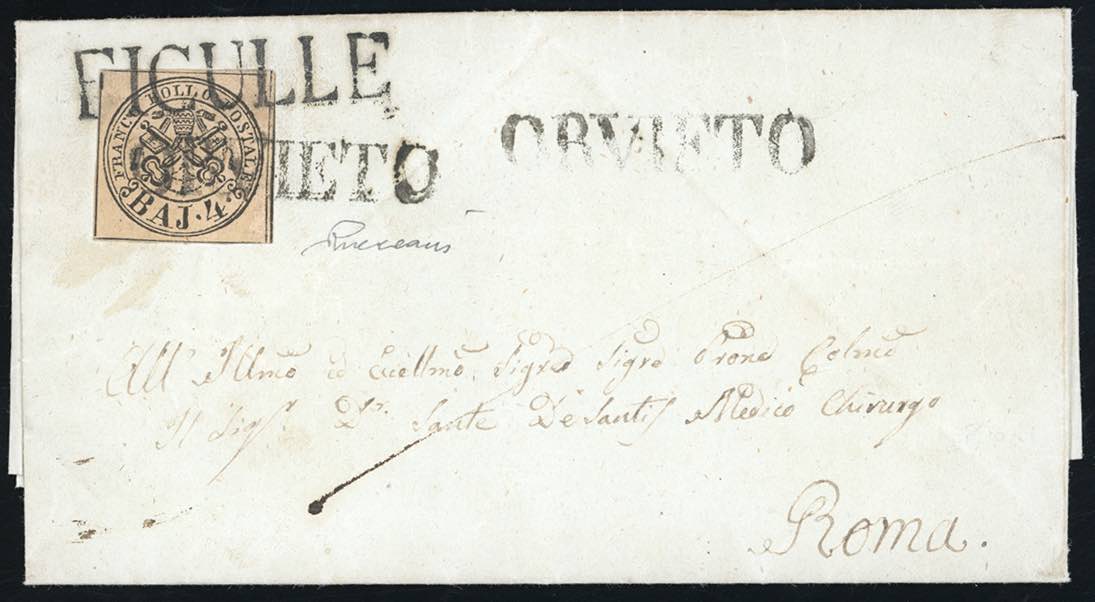 FICULLE
FRANCO BOLLO POSTALE
BAJ. 4.
ORVIETO
All' Illmo ed Eccellmo Sigre Sigre Prone Colmo
Il Sigr. Dr. Sante De Santis Medico Chirurgo
Roma.